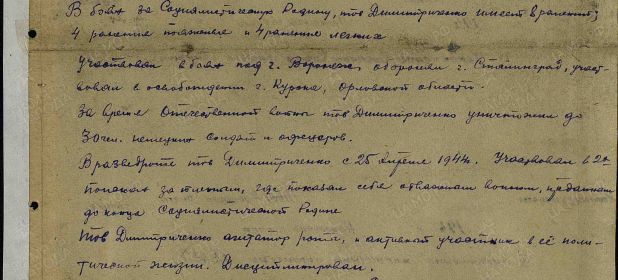 В боях за Социалистическую Родину, тов Димитриченко имеет 8 ранений;
4 ранения тяжелые и 4 ранения легкие
Участвовал в боях под г. Воронеж, оборонял г. Сталинград, участ-
вовал в освобождении г. Курска, Орловской области.
За время Отечественной войны тов Димитриченко уничтожил до
30 чел. немецких солдат и офицеров.
В разведроте тов Димитриченко с 25 апреля 1944. Участвовал в 2х
поисках за языком, где показал себя отважным воином, преданным
до конца Социалистической Родине
Тов Димитриченко агитатор роты, и активный участник в её поли-
тической жизни. Дисциплинирован.